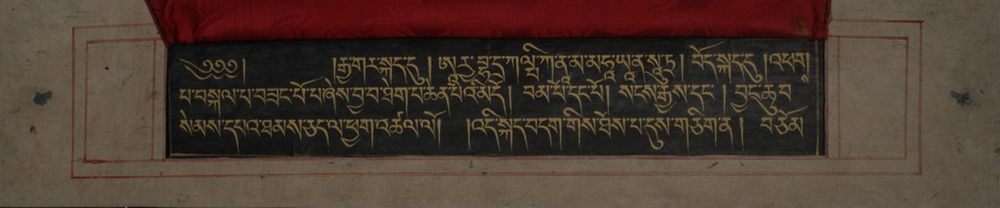 ༄༅༅། །རྒྱ་གར་སྐད་དུ། ཨཱརྱ་བྷ་དྲ་ཀ་ལྤི་ཀ་ནཱ་མ་མ་ཧཱ་ཡཱ་ན་སཱུ་ཏྲ། བོད་སྐད་དུ། འཕགས་
པ་བསྐལ་པ་བཟང་པོ་པ་ཞེས་བྱ་བ་ཐེག་པ་ཆེན་པོའི་མདོ། བམ་པོ་དང་པོ། སངས་རྒྱས་དང་། བྱང་ཆུབ་
སེམས་དཔའ་ཐམས་ཅད་ལ་ཕྱག་འཚལ་ལོ། །འདི་སྐད་བདག་གིས་ཐོས་པ་དུས་གཅིག་ན། བཅོམ